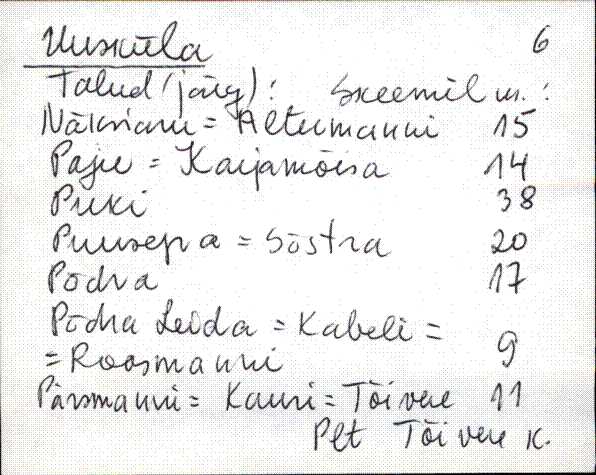 Uusküla 6
Talud (järg): Skeemil nr.:
Näkrani = Altermanni 15
Paju = Karjamõisa 14
Puki 38
Puusepa = Sõstra 20
Põdra 17
Põdra Leida = Kabeli = 9
= Roosmanni
Pärsmanni = Kauri = Tõivere 11
Plt Tõivere k.